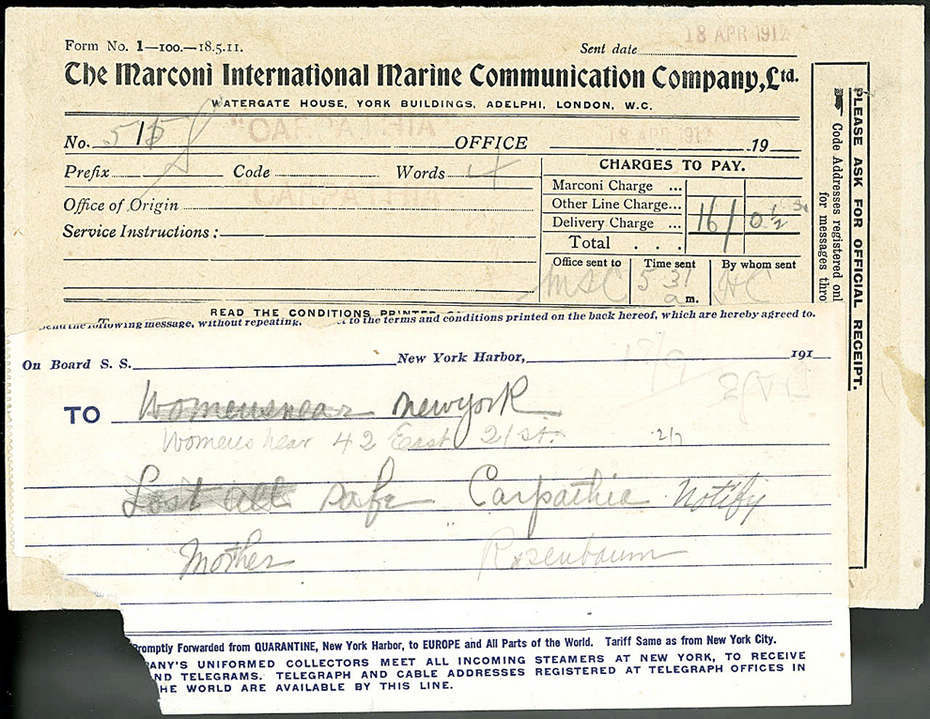 18 APR 1912
Form No. 1—100.—18.5.11.
Sent date
The Marconi International Marine Communication Company, Ltd.
WATERGATE HOUSE, YORK BUILDINGS, ADELPHI, LONDON, W.C.
"CARPATHIA"
No. OFFICE 19
CARPATHIA
Prefix Code Words 4
Office of Origin
Service Instructions:
CHARGES TO PAY.
Marconi Charge ...
Other Line Charge...
Delivery Charge ... 16/ 0 1/2
Total . . .
Office sent to Time sent By whom sent
MSC 5 31 a m. HC
READ THE CONDITIONS PRINTED
PLEASE ASK FOR OFFICIAL RECEIPT.
Code Addresses registered onl
for messages thro
send the following message, without repeating, to the terms and conditions printed on the back hereof, which are hereby agreed to.
On Board S. S. New York Harbor, 191
TO Womenswear newyork
Womens wear 42 East 21 st.
Lost all safe Carpathia Notify
Mother Rosenbaum
Promptly Forwarded from QUARANTINE, New York Harbor, to EUROPE and All Parts of the World. Tariff Same as from New York City.
PANY'S UNIFORMED COLLECTORS MEET ALL INCOMING STEAMERS AT NEW YORK, TO RECEIVE
ND TELEGRAMS. TELEGRAPH AND CABLE ADDRESSES REGISTERED AT TELEGRAPH OFFICES IN
HE WORLD ARE AVAILABLE BY THIS LINE.